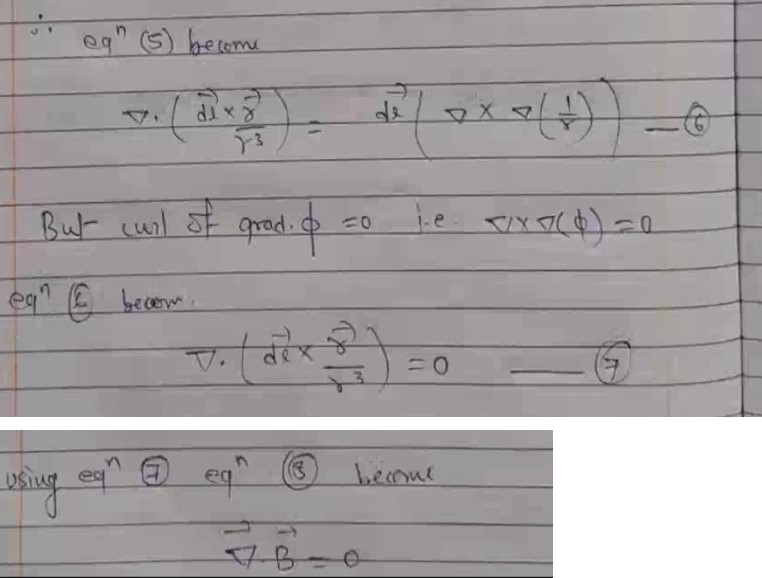 ∴ eqⁿ (5) become
∇. ( d͢l × r⃗ / r³ ) = d͢l ( ∇ × ∇ (1/r) ) — ⑥
But curl of grad. ϕ = 0 i.e. ∇×∇(ϕ) = 0
eqⁿ ⑥ becom.
∇. ( d͢l × r⃗ / r³ ) = 0 — ⑦
using eqⁿ ⑦ eqⁿ ③ become
∇⃗. B⃗ = 0